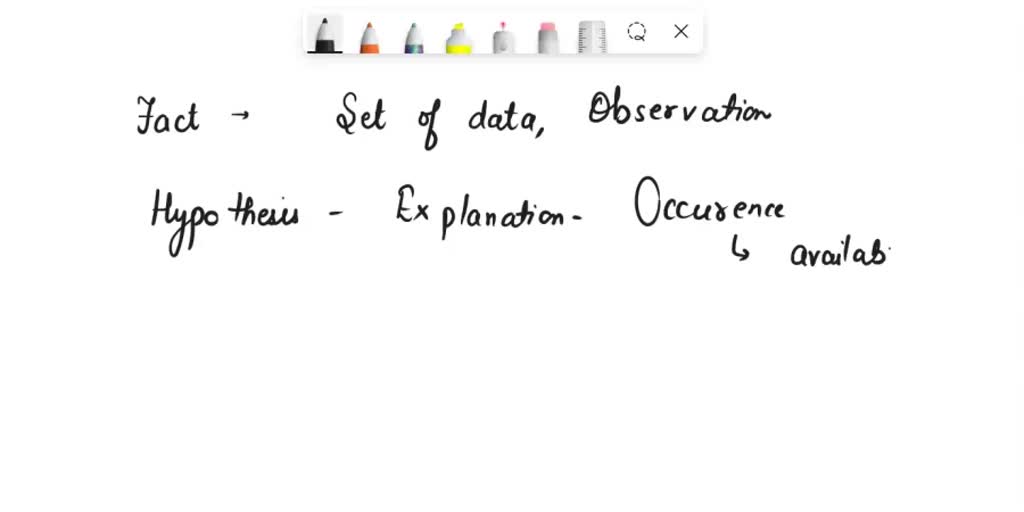 Fact → Set of data, Observation
Hypothesis - Explanation - Occurence
↳ availab